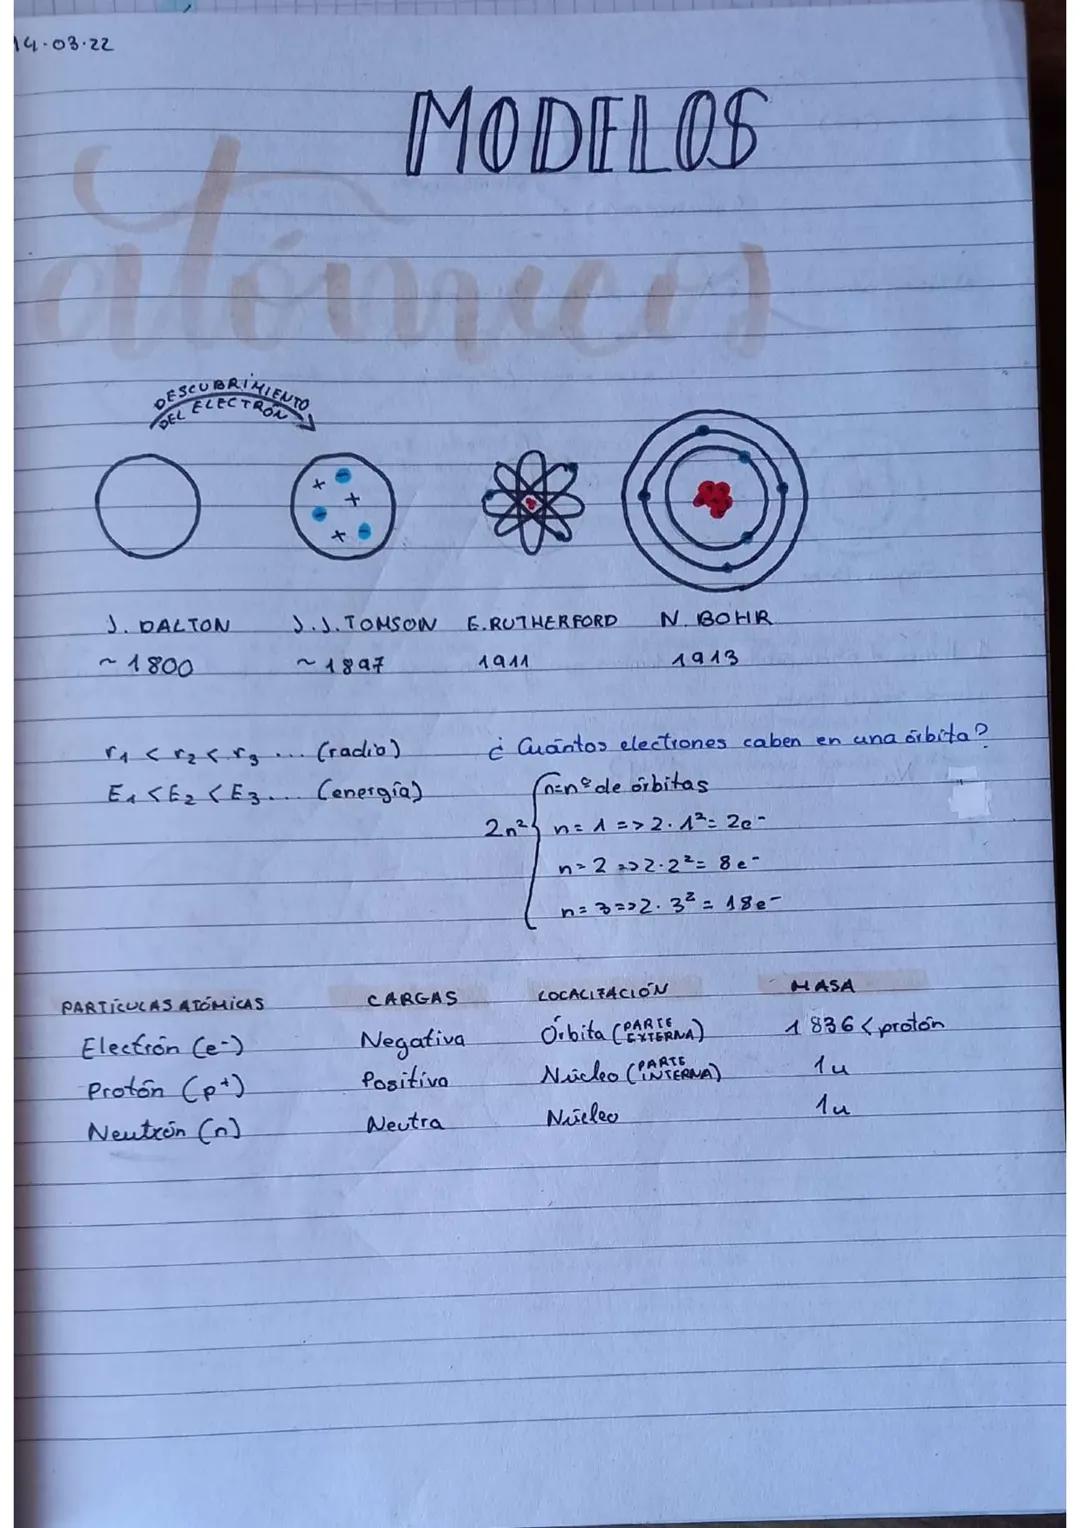 14.03.22
MODELOS
atómicos
DESCUBRIMIENTO
DEL ELECTRÓN
+ - + - + -
J. DALTON J.J. TOMSON E. RUTHERFORD N. BOHR
~ 1800 ~ 1897 1911 1913
r₁ < r₂ < r₃ ... (radio) ¿Cuántos electrones caben en una órbita?
E₁ < E₂ < E₃... (energía) n=nº de órbitas
2n² { n = 1 => 2 · 1² = 2e-
n = 2 => 2 · 2² = 8e-
n = 3 => 2 · 3² = 18e-
PARTÍCULAS ATÓMICAS CARGAS LOCALIZACIÓN MASA
Electrón (e-) Negativa Órbita (PARTE EXTERNA) 1836 < protón
Protón (p+) Positiva Núcleo (PARTE INTERNA) 1u
Neutrón (n) Neutra Núcleo 1u